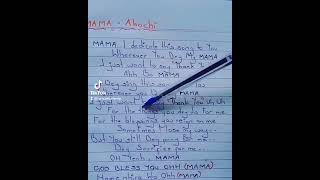 MAMA - Abochi
MAMA I dedicate this song to You
Wherever You Dey My MAMA
I just want to say Thank
Ahh Eo MAMA
Dey sing this You
you MAMA
TikTok
I just Thank You Uh, Uh
For the you dey do for me
For the blessings you reign on me
Sometimes I lose my way
But You still Dey pray for me
Dey Sacrifice for me
OH Yeah, MAMA
GOD BLESS YOU OHH (MAMA)
Ohh (MAMA)